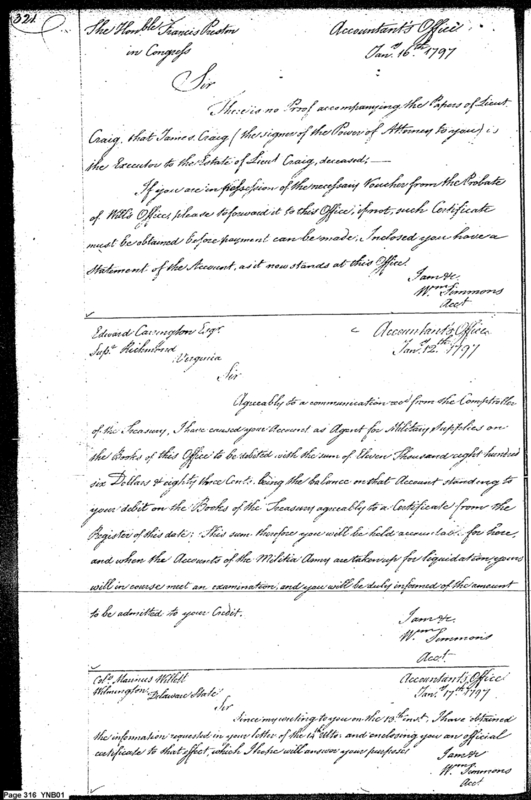 321.
The Honble Francis Preston
in Congress
Accountant's Office
Jany. 16th 1797
Sir
There is no Proof accompanying the Papers of Lieut
Craig, that James Craig (the signer of the Power of Attorney to you) is
the Executor to the Estate of Lieut Craig, deceased;—
If you are in possession of the necessary Voucher from the Probate
of Will's Office, please to forward it to this Office; if not, such Certificate
must be obtained before payment can be made. Inclosed you have a
Statement of the Account, as it now stands at this Office.
I am &c.
Wm. Simmons
Acct.
Edward Carrington Esqr.
Supr. Richmond
Virginia
Accountant's Office
Jany. 12th 1797
Sir
Agreeably to a communication recd. from the Comptroller
of the Treasury, I have caused your Account as Agent for Military supplies on
the Books of this Office to be debited with the sum of Eleven Thousand eight hundred
six Dollars & eighty three Cents. being the balance on that Account standing to
your debit on the Books of the Treasury agreeably to a Certificate from the
Register of this date: This sum therefore you will be held accountae. for here,
and when the Accounts of the Militia Army are taken up for liquidation, yours
will in course meet an examination, and you will be duly informed of the amount
to be admitted to your Credit.
I am &c.
Wm. Simmons
Acct.
Colo. Marinus Willett
Wilmington, Delaware State
Accountant's Office
Jany. 17th 1797
Sir
Since my writing to you on the 13th inst. I have obtained
the information requested in your letter of the 14th Ulto. and enclosing you an official
certificate to that effect, which I hope will answer your purposes.
I am &c
Wm. Simmons
Acct.
Page 316 YNB01